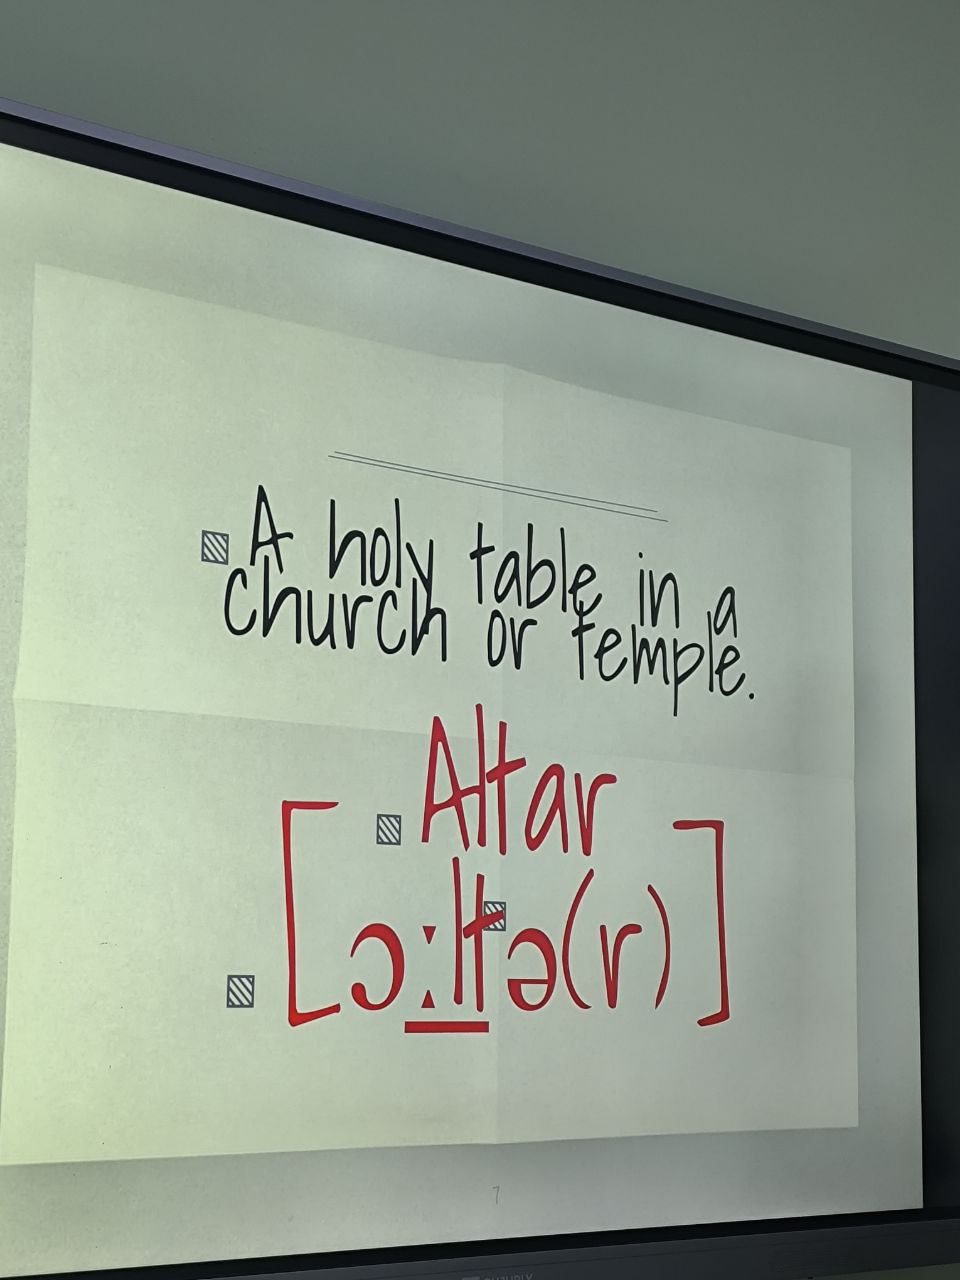 A holy table in a
church or temple.
Altar
[ɔːltə(r)]
7